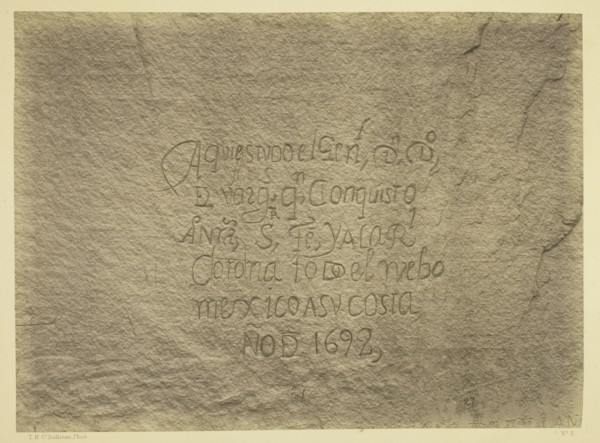 Aqui estudo el Genl, Dn, Do,
D vargs, qn, Conquisto
A Nra, S, Fe, Y A la Rl
Corona todo el nvebo
mexico ASV costa
ÑO D 1692,
T. H. O'Sullivan, Phot.
No 3.